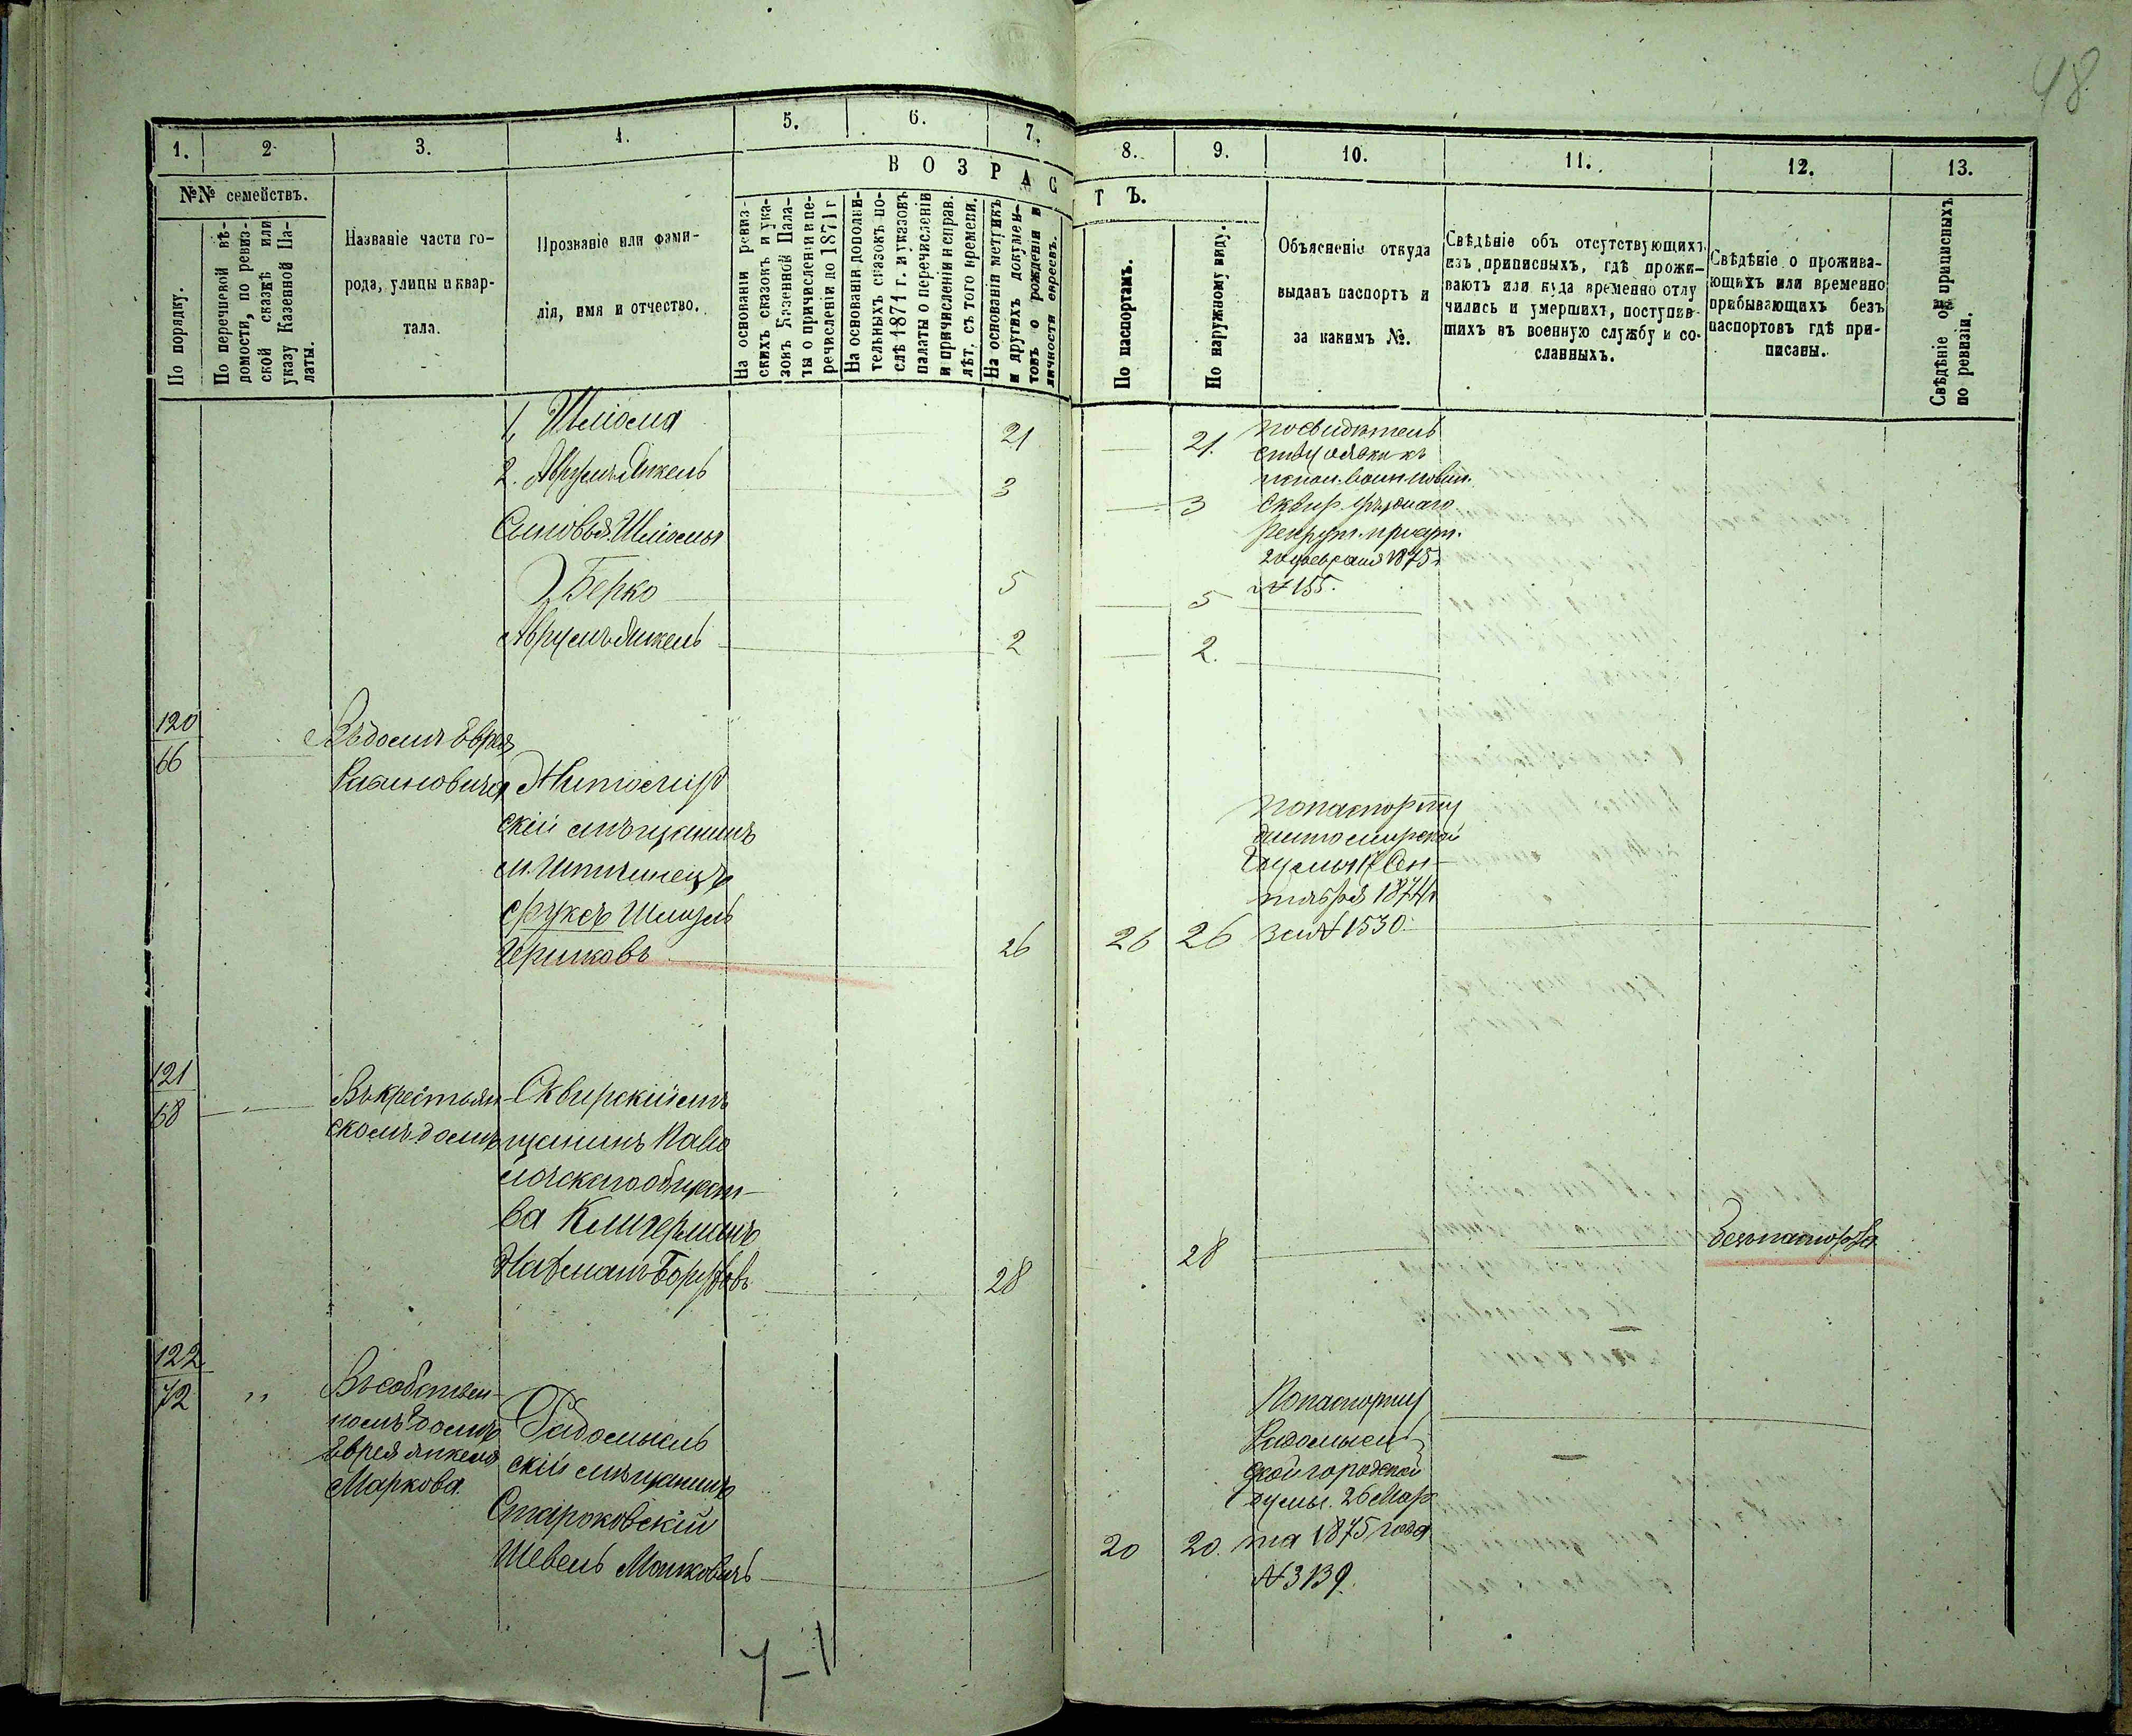 48
1.
2
3.
4.
5.
6.
7.
8.
9.
10.
11.
12.
13.
№№ семействъ.
По порядку.
По перечневой вѣ-
домости, по ревиз-
ской сказкѣ или
указу Казенной Па-
латы.
Названіе части го-
рода, улицы и квар-
тала.
Прозваніе или фами-
лія, имя и отчество.
ВОЗРАС
ТЪ.
На основаніи ревиз-
скихъ сказокъ и ука-
зовъ Казенной Пала-
ты о причисленіи и пе-
речисленіи до 1871 г
На основаніи дополни-
тельныхъ сказокъ по-
слѣ 1871 г. и указовъ
палаты о перечисленіи
и причисленіи и справ.
лѣт. съ того времени.
На основаніи метрикъ
и другихъ докумен-
товъ о рожденіи и
личности евреевъ.
По паспортамъ.
По наружному виду.
Объясненіе откуда
выданъ паспортъ и
за какимъ №.
Свѣдѣніе объ отсутствующихъ
изъ приписныхъ, гдѣ прожи-
ваютъ или куда временно отлу
чились и умершихъ, поступив-
шихъ въ военную службу и со-
сланныхъ.
Свѣдѣніе о прожива-
ющихъ или временно
прибывающихъ безъ
паспортовъ гдѣ при-
писаны.
Свѣдѣніе о приписныхъ
по ревизіи.
1, Шліома 21 21.
2. Аврумъ Янкель 3 3
Сыновья Шліомы
Берко 5 5
Аврумъ Янкель 2 2.
по свидѣтель
ству о явкѣ къ
Сквир. уѣзднаго
рекрут. присут.
20 февраля 1875 г
№ 155.
120
66
Въ домѣ Еврея
Рабиновича
Житомир
скій мѣщанинъ
Фуксъ Шмуль
Гершковъ 26 26 26
По паспорту
житомирской
Думы 17 Сен-
тября 1874 г
за № 1530.
121
68
Въ крестьян
скомъ домѣ
Сквирскій мѣ
щанинъ Паво
лочскаго общест-
ва Клигерманъ
Нафманъ Борухов 28
28
безъ паспорта
122
72 "
Въ собствен-
номъ домѣ
Еврея Янкеля
Маркова
Радомысль
скій мѣщанинъ
Староковскій
Шевель Мошковичъ 20 20.
По паспорту
Радомысль
ской городской
думы. 26 Мар
та 1875 года
№ 3139.